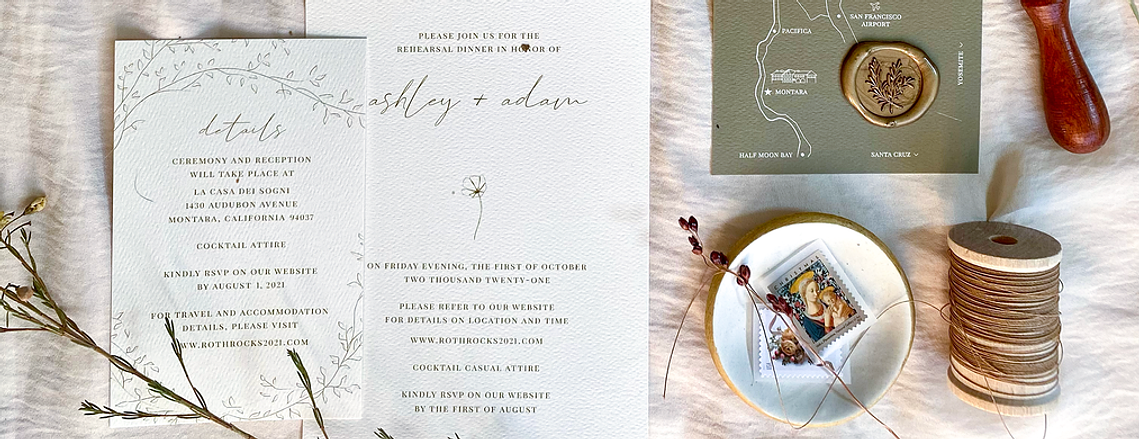 details
CEREMONY AND RECEPTION
WILL TAKE PLACE AT
LA CASA DEI SOGNI
1430 AUDUBON AVENUE
MONTARA, CALIFORNIA 94037
COCKTAIL ATTIRE
KINDLY RSVP ON OUR WEBSITE
BY AUGUST 1, 2021
FOR TRAVEL AND ACCOMMODATION
DETAILS, PLEASE VISIT
WWW.ROTHROCKS2021.COM
PLEASE JOIN US FOR THE
REHEARSAL DINNER IN HONOR OF
ashley + adam
ON FRIDAY EVENING, THE FIRST OF OCTOBER
TWO THOUSAND TWENTY-ONE
PLEASE REFER TO OUR WEBSITE
FOR DETAILS ON LOCATION AND TIME
WWW.ROTHROCKS2021.COM
COCKTAIL CASUAL ATTIRE
KINDLY RSVP ON OUR WEBSITE
BY THE FIRST OF AUGUST
SAN FRANCISCO
AIRPORT
PACIFICA
MONTARA
YOSEMITE
HALF MOON BAY
SANTA CRUZ
CHRISTMAS